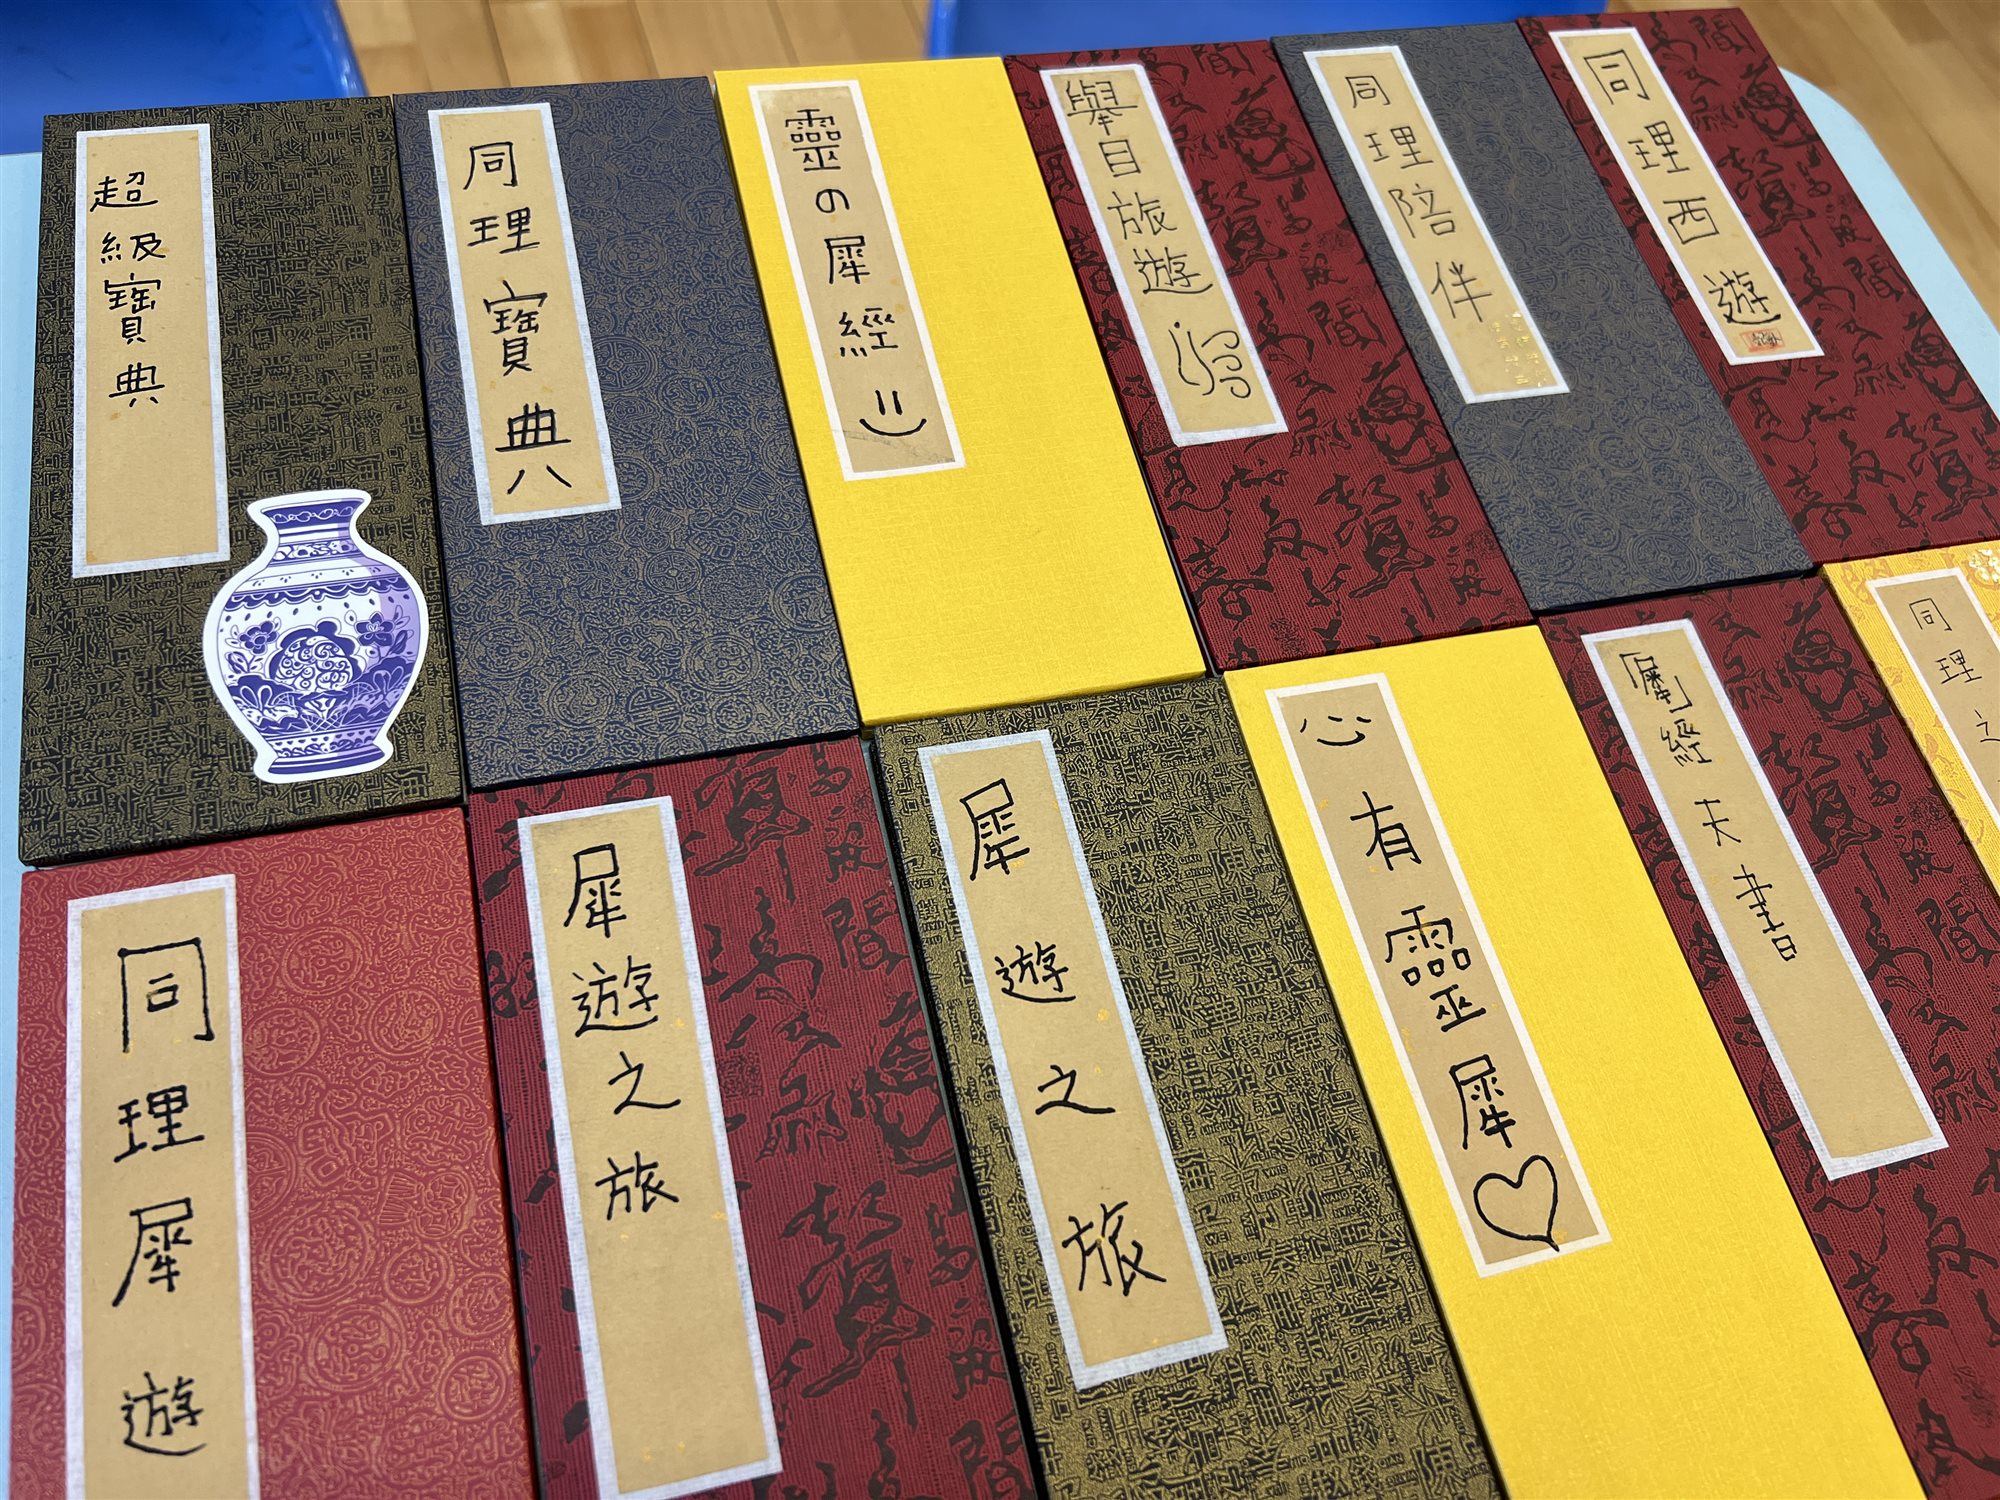 超級寶典
同理寶典
靈の犀經
舉目旅遊
同理陪伴
同理西遊
同理犀遊
犀遊之旅
犀遊之旅
心有靈犀
經天書
同理之